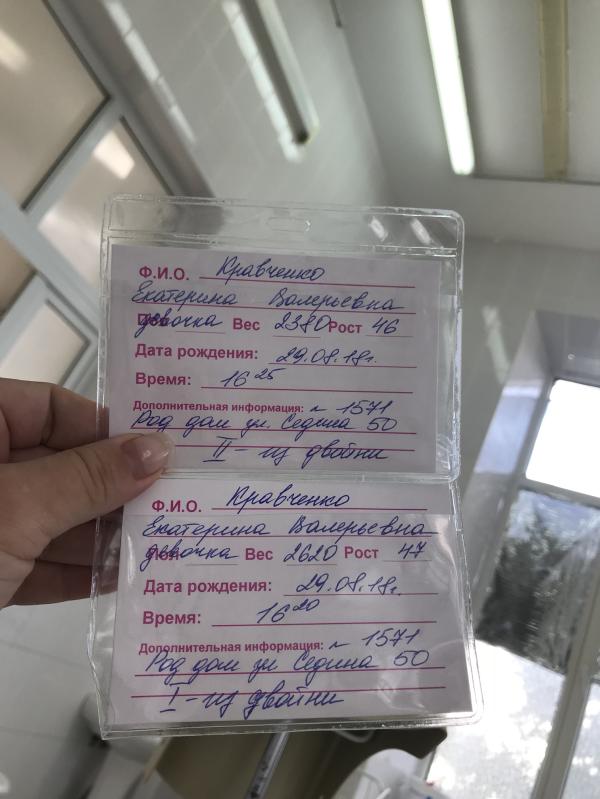 Ф.И.О. Кравченко
Екатерина Валерьевна
девочка Вес 2380 Рост 46
Дата рождения: 29.08.18г.
Время: 16 25
Дополнительная информация: № 1571
Род дом ул. Седина 50
II - из двойни
Ф.И.О. Кравченко
Екатерина Валерьевна
девочка Вес 2620 Рост 47
Дата рождения: 29.08.18г.
Время: 16 20
Дополнительная информация: № 1571
Род дом ул Седина 50
I - из двойни